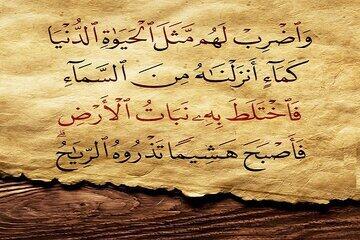 وَٱضۡرِبۡ لَهُم مَّثَلَ ٱلۡحَيَوٰةِ ٱلدُّنۡيَا
كَمَآءٍ أَنزَلۡنَٰهُ مِنَ ٱلسَّمَآءِ
فَٱخۡتَلَطَ بِهِۦ نَبَاتُ ٱلۡأَرۡضِ
فَأَصۡبَحَ هَشِيمٗا تَذۡرُوهُ ٱلرِّيَٰحُۗ